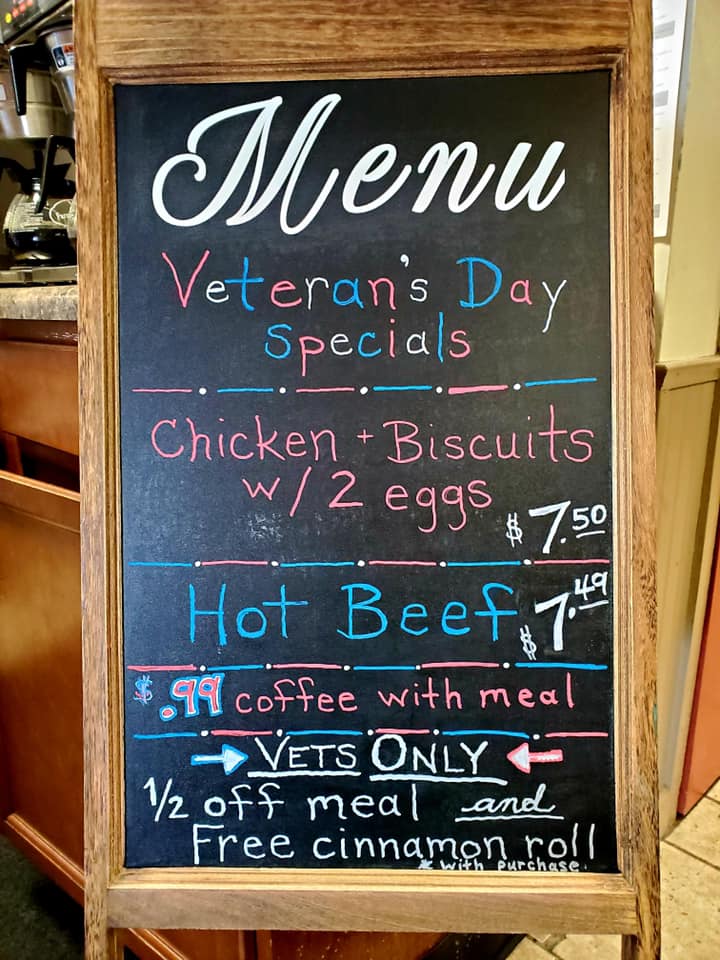 Menu
Veteran's Day
Specials
Chicken + Biscuits
w/ 2 eggs
$7.50
Hot Beef $7.49
$.99 coffee with meal
VETS ONLY
1/2 off meal and
Free cinnamon roll
* with purchase.